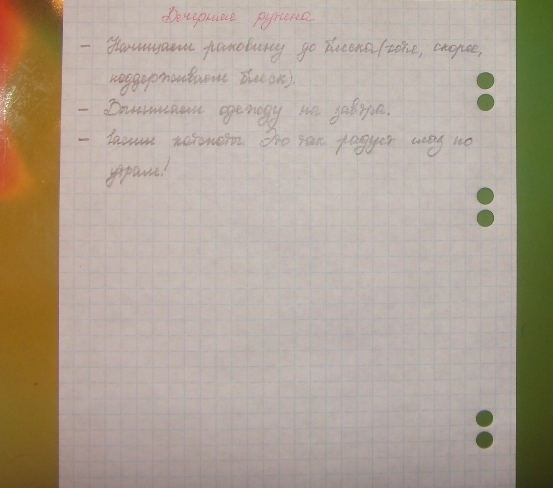 Вечерняя рутина
- Начищаем раковину до блеска (хотя, скорее,
поддерживаем блеск).
- Вынимаем одежду на завтра.
- Гасим хотспоты. Это так радует глаз по
утрам!